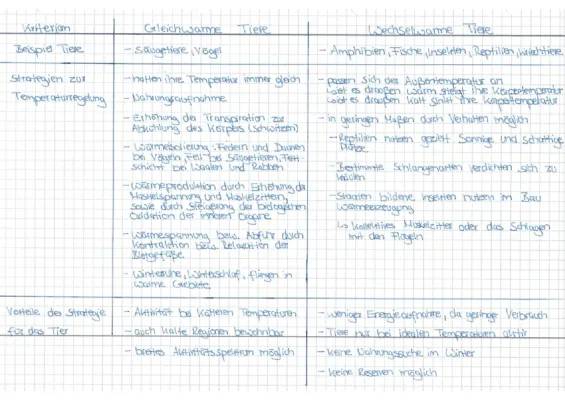 Kriterien
Gleichwarme Tiere
Wechselwarme Tiere
Beispiel Tiere
- Säugetiere, Vögel
- Amphibien, Fische, Insekten, Reptilien, Weichtiere
Strategien zur
Temperaturregelung
- halten ihre Temperatur immer gleich
- Nahrungsaufnahme
- Erhöhung der Transpiration zur
Abkühlung des Körpers (Schwitzen)
- Wärmeisolierung: Federn und Daunen
bei Vögeln, Fell bei Säugetieren, Fett-
schicht bei Walen und Robben
- Wärmeproduktion durch Erhöhung der
Muskelspannung und Muskelzittern,
sowie durch Steigerung der biologischen
Oxidation der inneren Organe
- Wärmespannung bzw. Abfuhr durch
Kontraktion bzw. Relaxation der
Blutgefäße
- Winterruhe, Winterschlaf, fliegen in
warme Gebiete
- passen sich der Außentemperatur an
ist es draußen warm steigt ihre Körpertemperatur
ist es draußen kalt sinkt ihre Körpertemperatur
- in geringen Maßen durch Verhalten möglich
- Reptilien nutzen gezielt Sonnige und Schattige
Plätze
- Bestimmte Schlangenarten verdichten sich zu
- Staaten bildene Insekten nutzen im Bau
Wärmeerzeugung
↳ kollektives Muskelzittern oder das Schlagen
mit den Flügeln
Vorteile der Strategie
für das Tier
- Aktivität bei kälteren Temperaturen
- auch kalte Regionen bewohnbar
- breites Aktivitätsspektrum möglich
- weniger Energieaufnahme, da geringer Verbrauch
- Tiere nur bei idealen Temperaturen aktiv
- keine Nahrungssuche im Winter
- keine Reserven möglich